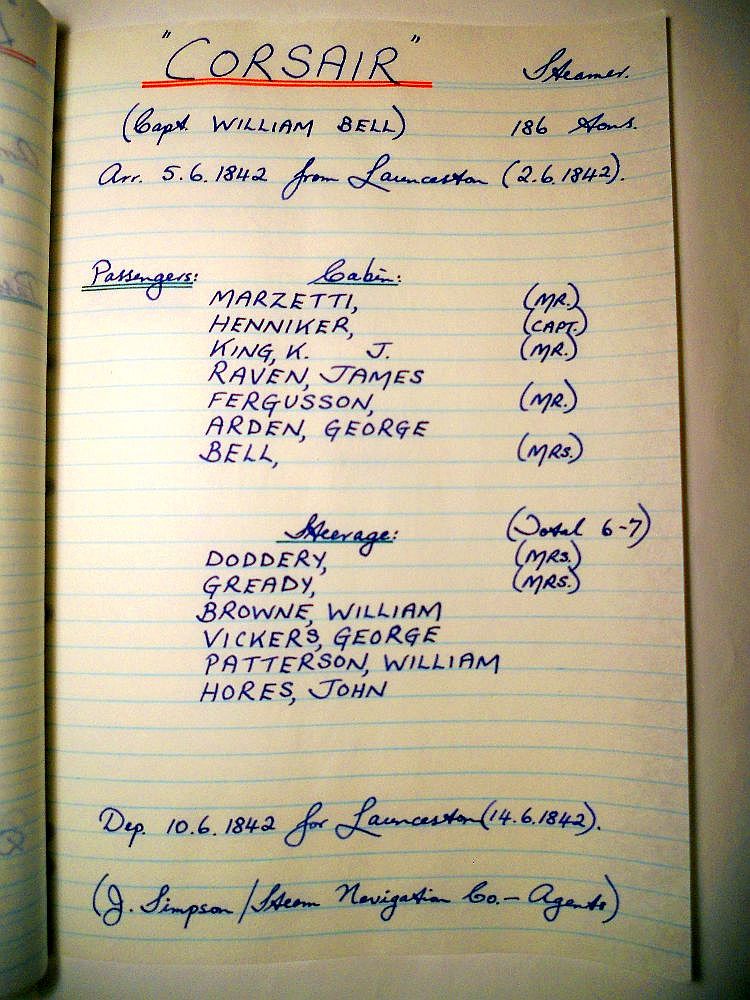 "CORSAIR" Steamer.
(Capt. WILLIAM BELL) 186 tons.
Arr. 5.6.1842 from Launceston (2.6.1842).
Passengers: Cabin:
MARZETTI, (MR.)
HENNIKER, (CAPT.)
KING, K. J. (MR.)
RAVEN, JAMES
FERGUSSON, (MR.)
ARDEN, GEORGE
BELL, (MRS.)
Steerage: (Total 6-7)
DODDERY, (MRS.)
GREADY, (MRS.)
BROWNE, WILLIAM
VICKERS, GEORGE
PATTERSON, WILLIAM
HORES, JOHN
Dep. 10.6.1842 for Launceston (14.6.1842).
(J. Simpson / Steam Navigation Co. - Agents)